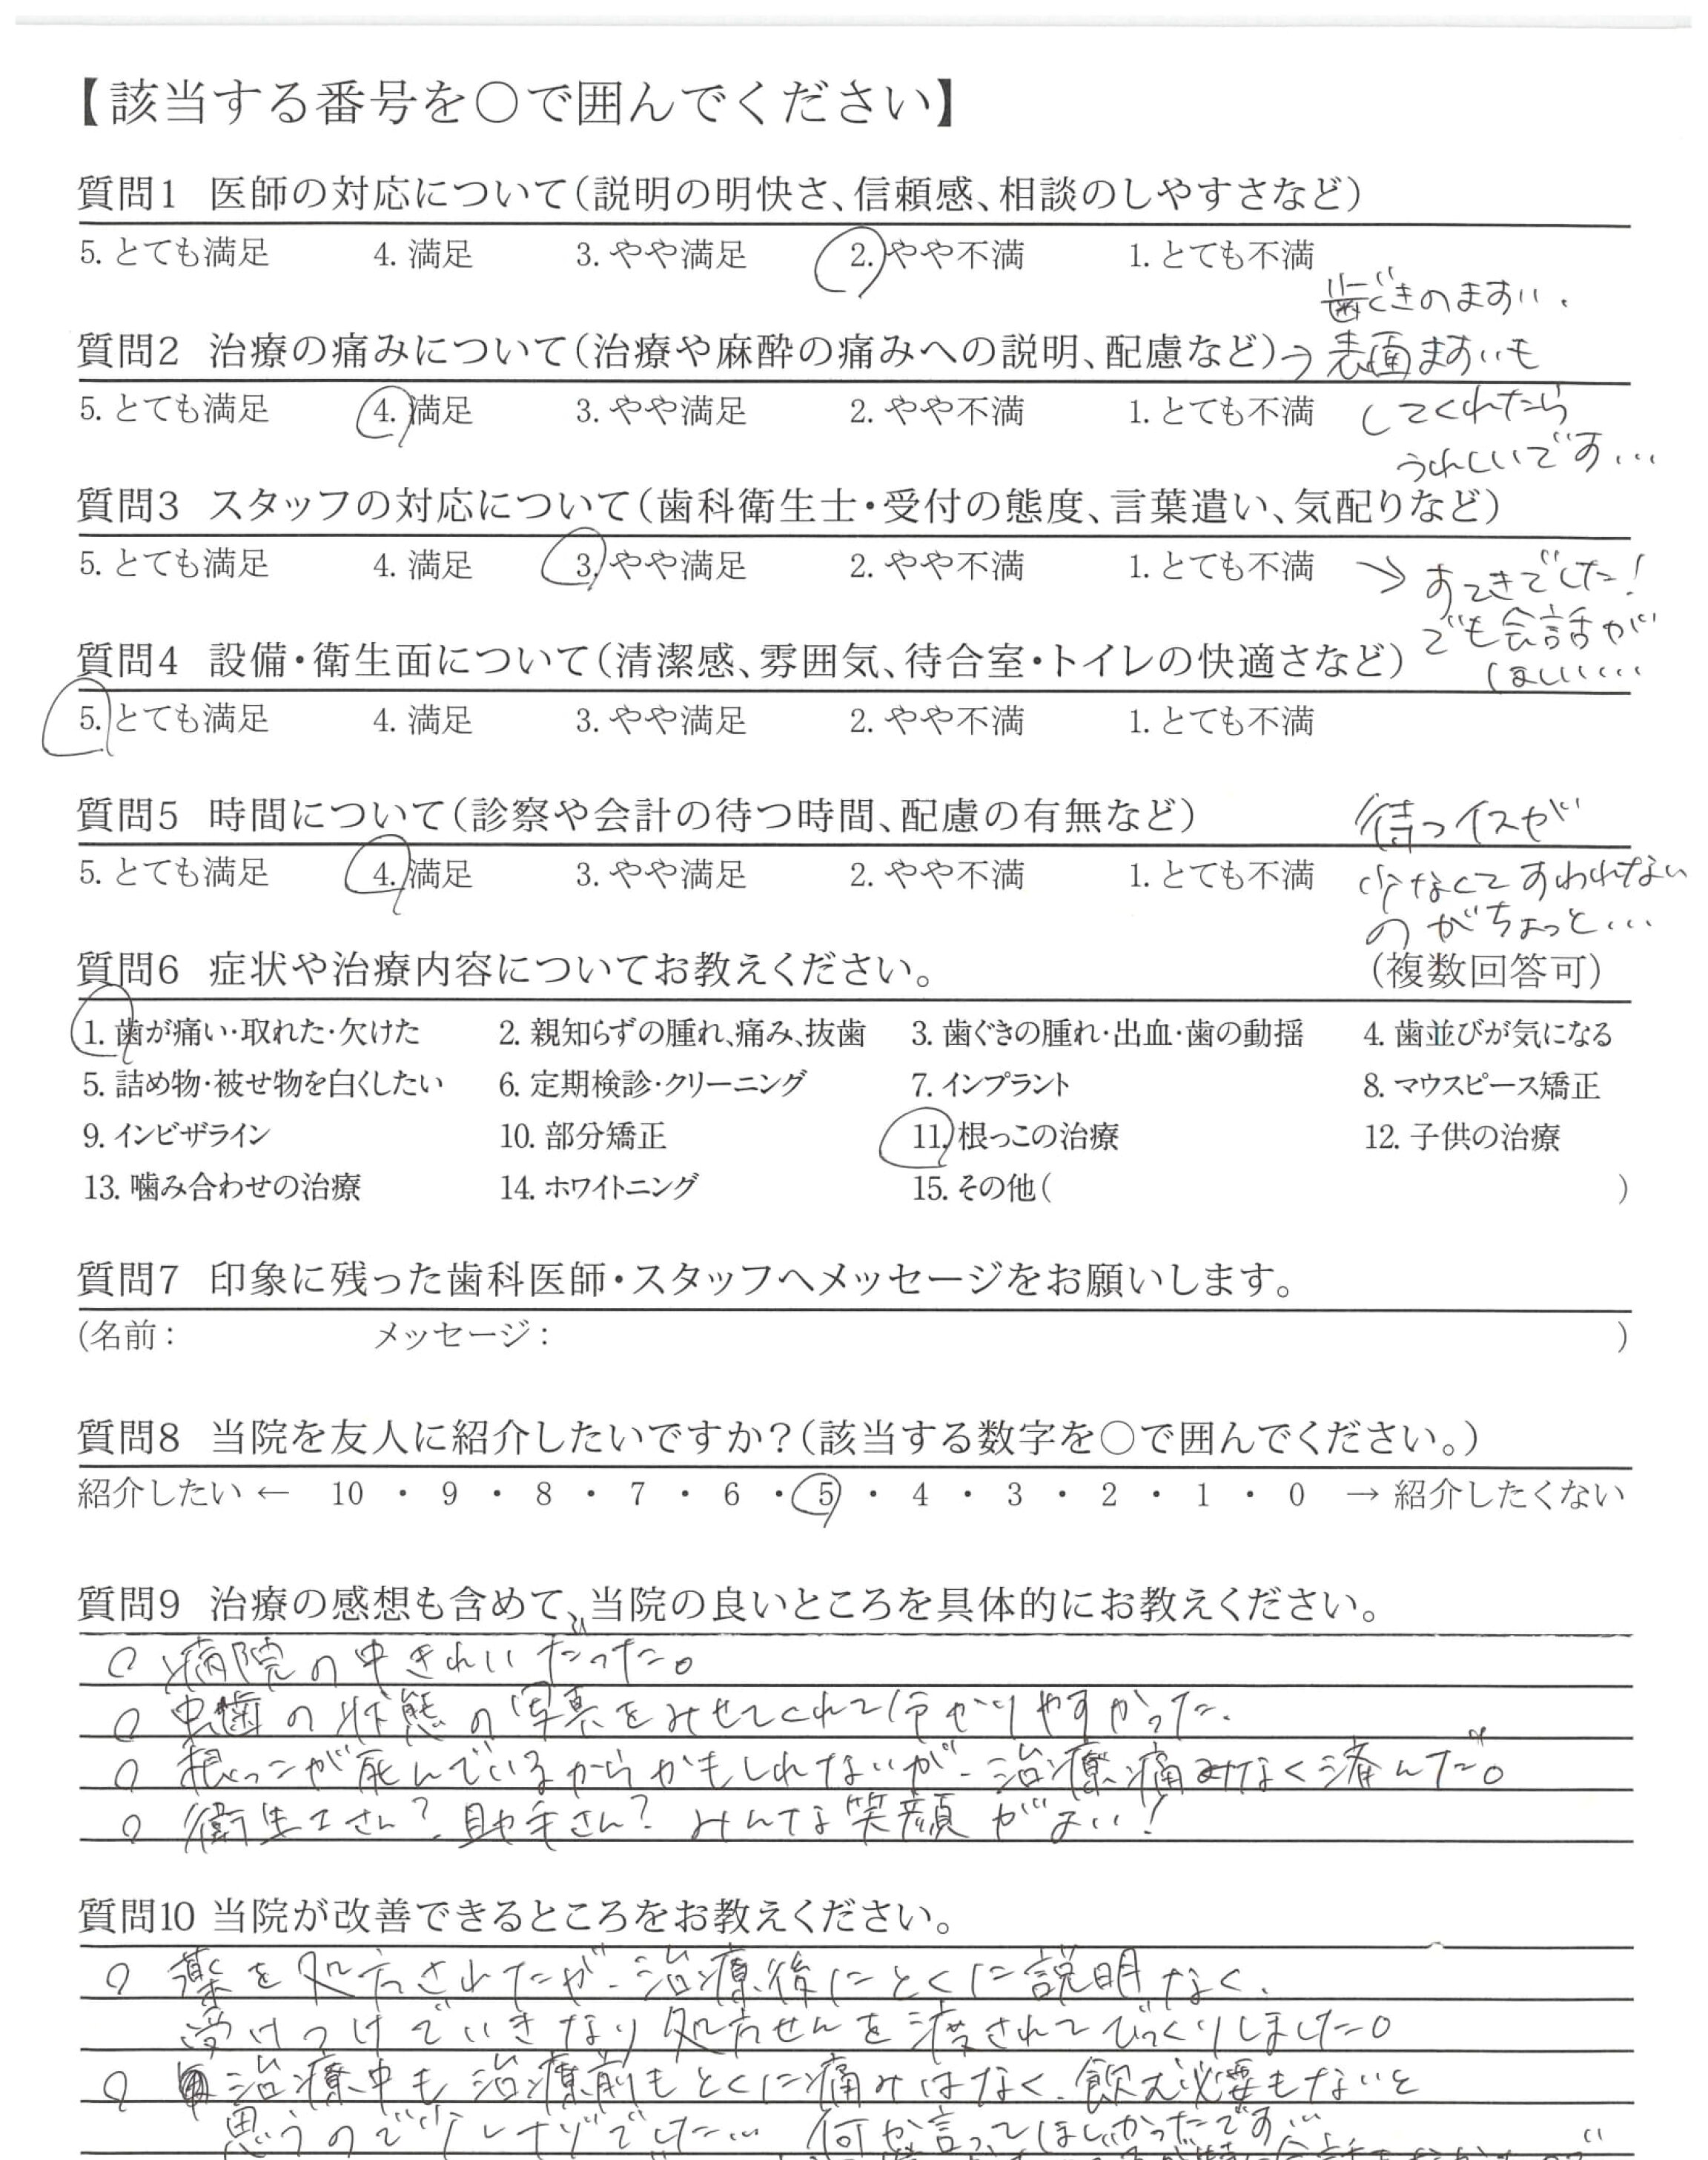 【該当する番号を○で囲んでください】
質問1 医師の対応について(説明の明快さ、信頼感、相談のしやすさなど)
5. とても満足 4. 満足 3. やや満足 2. やや不満 1. とても不満
歯ぐきのますい、
質問2 治療の痛みについて(治療や麻酔の痛みへの説明、配慮など)→ 表面ますいも
5. とても満足 4. 満足 3. やや満足 2. やや不満 1. とても不満 してくれたら
うれしいです…
質問3 スタッフの対応について(歯科衛生士・受付の態度、言葉遣い、気配りなど)
5. とても満足 4. 満足 3. やや満足 2. やや不満 1. とても不満 → すてきでした!
でも会話が
質問4 設備・衛生面について(清潔感、雰囲気、待合室・トイレの快適さなど) ほしい…
5. とても満足 4. 満足 3. やや満足 2. やや不満 1. とても不満
質問5 時間について(診察や会計の待つ時間、配慮の有無など) 待つイスが
5. とても満足 4. 満足 3. やや満足 2. やや不満 1. とても不満 少なくてすわれない
のがちょっと…
質問6 症状や治療内容についてお教えください。 (複数回答可)
1. 歯が痛い・取れた・欠けた 2. 親知らずの腫れ、痛み、抜歯 3. 歯ぐきの腫れ・出血・歯の動揺 4. 歯並びが気になる
5. 詰め物・被せ物を白くしたい 6. 定期検診・クリーニング 7. インプラント 8. マウスピース矯正
9. インビザライン 10. 部分矯正 11. 根っこの治療 12. 子供の治療
13. 噛み合わせの治療 14. ホワイトニング 15. その他( )
質問7 印象に残った歯科医師・スタッフへメッセージをお願いします。
(名前: メッセージ: )
質問8 当院を友人に紹介したいですか?(該当する数字を○で囲んでください。)
紹介したい ← 10 ・ 9 ・ 8 ・ 7 ・ 6 ・ 5 ・ 4 ・ 3 ・ 2 ・ 1 ・ 0 → 紹介したくない
質問9 治療の感想も含めて、当院の良いところを具体的にお教えください。
○ 病院の中きれいだった。
○ 虫歯の状態の写真をみせてくれて分かりやすかった。
○ 根っこが死んでいるからかもしれないが、治療痛みなく済んだ。
○ 衛生士さん?助手さん?みんな笑顔がよい!
質問10 当院が改善できるところをお教えください。
○ 薬を処方されたが、治療後にとくに説明なく、
受けつけでいきなり処方せんを渡されてびっくりしました。
○ 治療中も治療前もとくに痛みはなく、飲む必要もないと
思うので少しナゾでした… 何か言ってほしかったです…